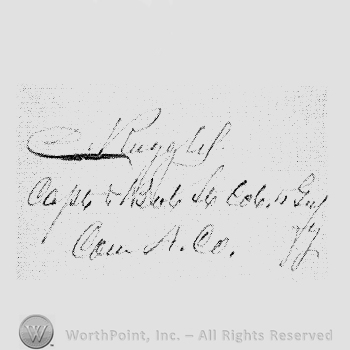 Ruggles
Capt & Bvt Lt Col. 5 Inf
Com A. Co.
WorthPoint, Inc. – All Rights Reserved